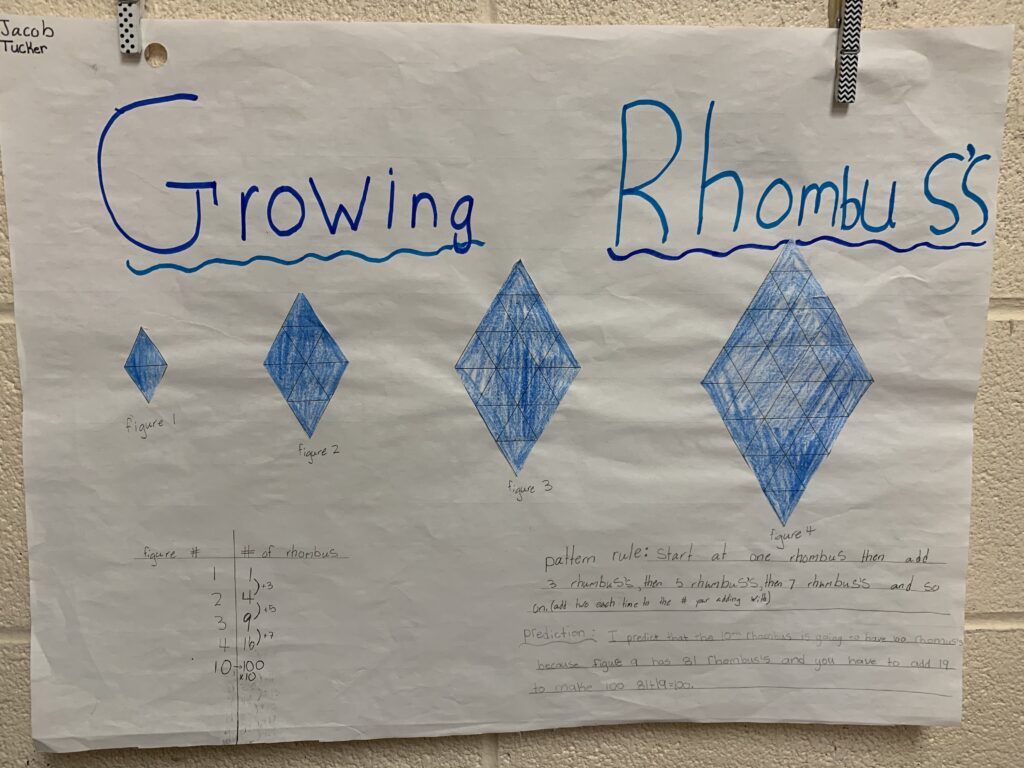 Jacob
Tucker
Growing Rhombus's
figure 1
figure 2
figure 3
figure 4
figure # # of rhombus
1 1
)+3
2 4
)+5
3 9
)+7
4 16
10 →100
×10
pattern rule: Start at one rhombus then add
3 rhumbus's, then 5 rhumbus's, then 7 rhumbus's and so
on. (add two each time to the # your adding with)
prediction: I predict that the 10th rhombus is going to have 100 rhombus's
because figure 9 has 81 rhombus's and you have to add 19
to make 100 81+19=100.